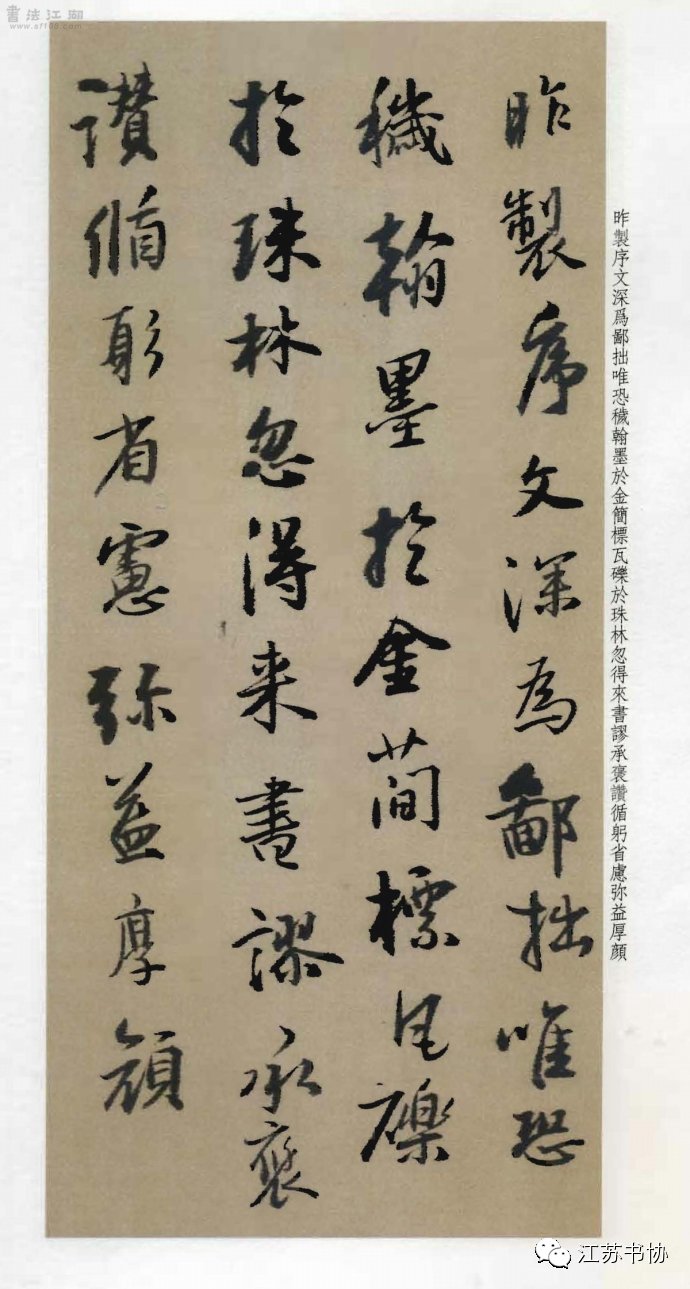 書法江湖
www.sf108.com
昨製序文深為鄙拙唯恐
穢翰墨於金簡標瓦礫
於珠林忽得来書謬承褒
讃循躬省慮弥益厚顔
昨製序文深爲鄙拙唯恐穢翰墨於金簡標瓦礫於珠林忽得來書謬承褒讚循躬省慮弥益厚顔
江苏书协